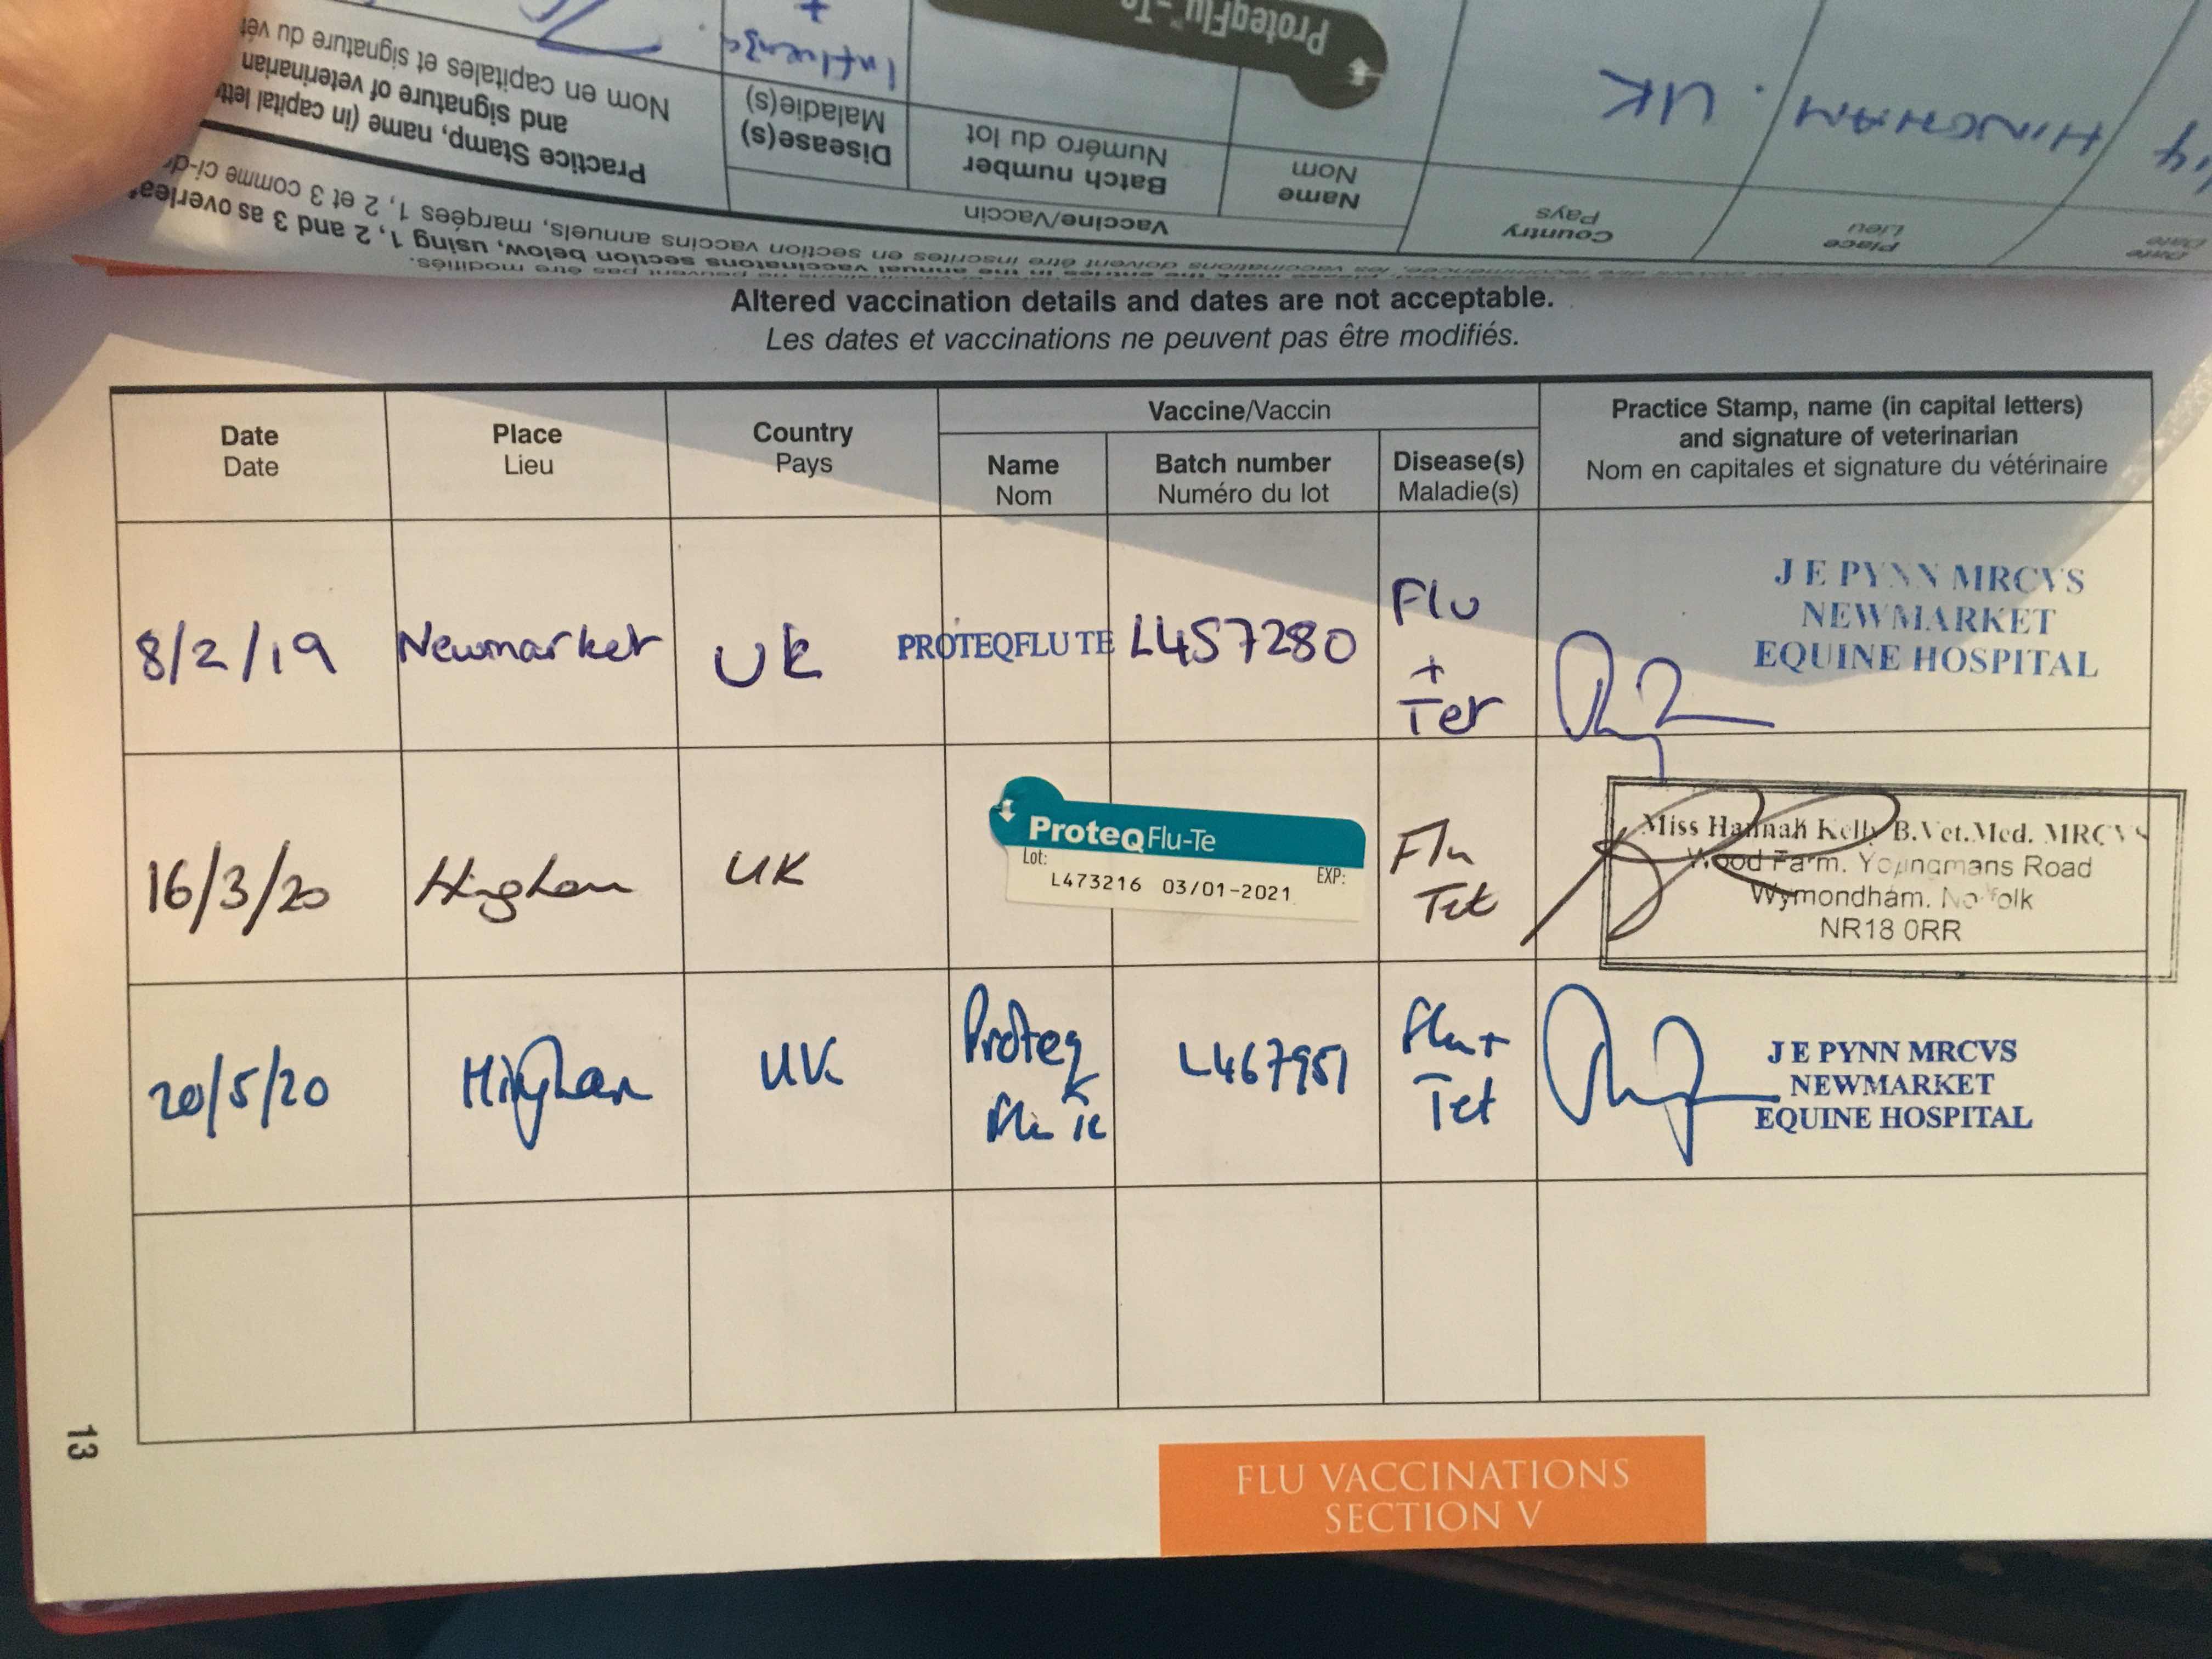 ProteqFlu™-Te
Influenza
+
HINGHAM. UK
Date
Date
Place
Lieu
Country
Pays
Vaccine/Vaccin
Name
Nom
Batch number
Numéro du lot
Disease(s)
Maladie(s)
Practice Stamp, name (in capital lett
and signature of veterinarian
Nom en capitales et signature du vét
below, using 1, 2 and 3 as overleaf
doivent être inscrites en section vaccins annuels, marquées 1, 2 et 3 comme ci-d
Altered vaccination details and dates are not acceptable.
Les dates et vaccinations ne peuvent pas être modifiés.
Date
Date
Place
Lieu
Country
Pays
Vaccine/Vaccin
Name
Nom
Batch number
Numéro du lot
Disease(s)
Maladie(s)
Practice Stamp, name (in capital letters)
and signature of veterinarian
Nom en capitales et signature du vétérinaire
8/2/19 Newmarket UK PROTEQFLU TE L457280 Flu
+
Tet
J E PYNN MRCVS
NEWMARKET
EQUINE HOSPITAL
16/3/20 Hingham UK
ProteqFlu-Te
Lot: EXP:
L473216 03/01-2021
Flu
Tet
Miss Hannah Kelly B.Vet.Med. MRCVS
Wood Farm. Youngmans Road
Wymondham. Norfolk
NR18 0RR
20/5/20 Hingham UK Proteq
Flu Te
L467951
Flu+
Tet
J E PYNN MRCVS
NEWMARKET
EQUINE HOSPITAL
13
FLU VACCINATIONS
SECTION V